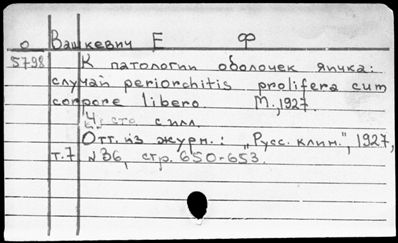 о Вашкевич Е Ф
5798 К патологии оболочек яичка:
случай periorchitis prolifera cum
corpore libero. М., 1927.
с илл.
Отт. из журн.: "Русс. клин.", 1927,
т.7 №36, стр. 650-653.